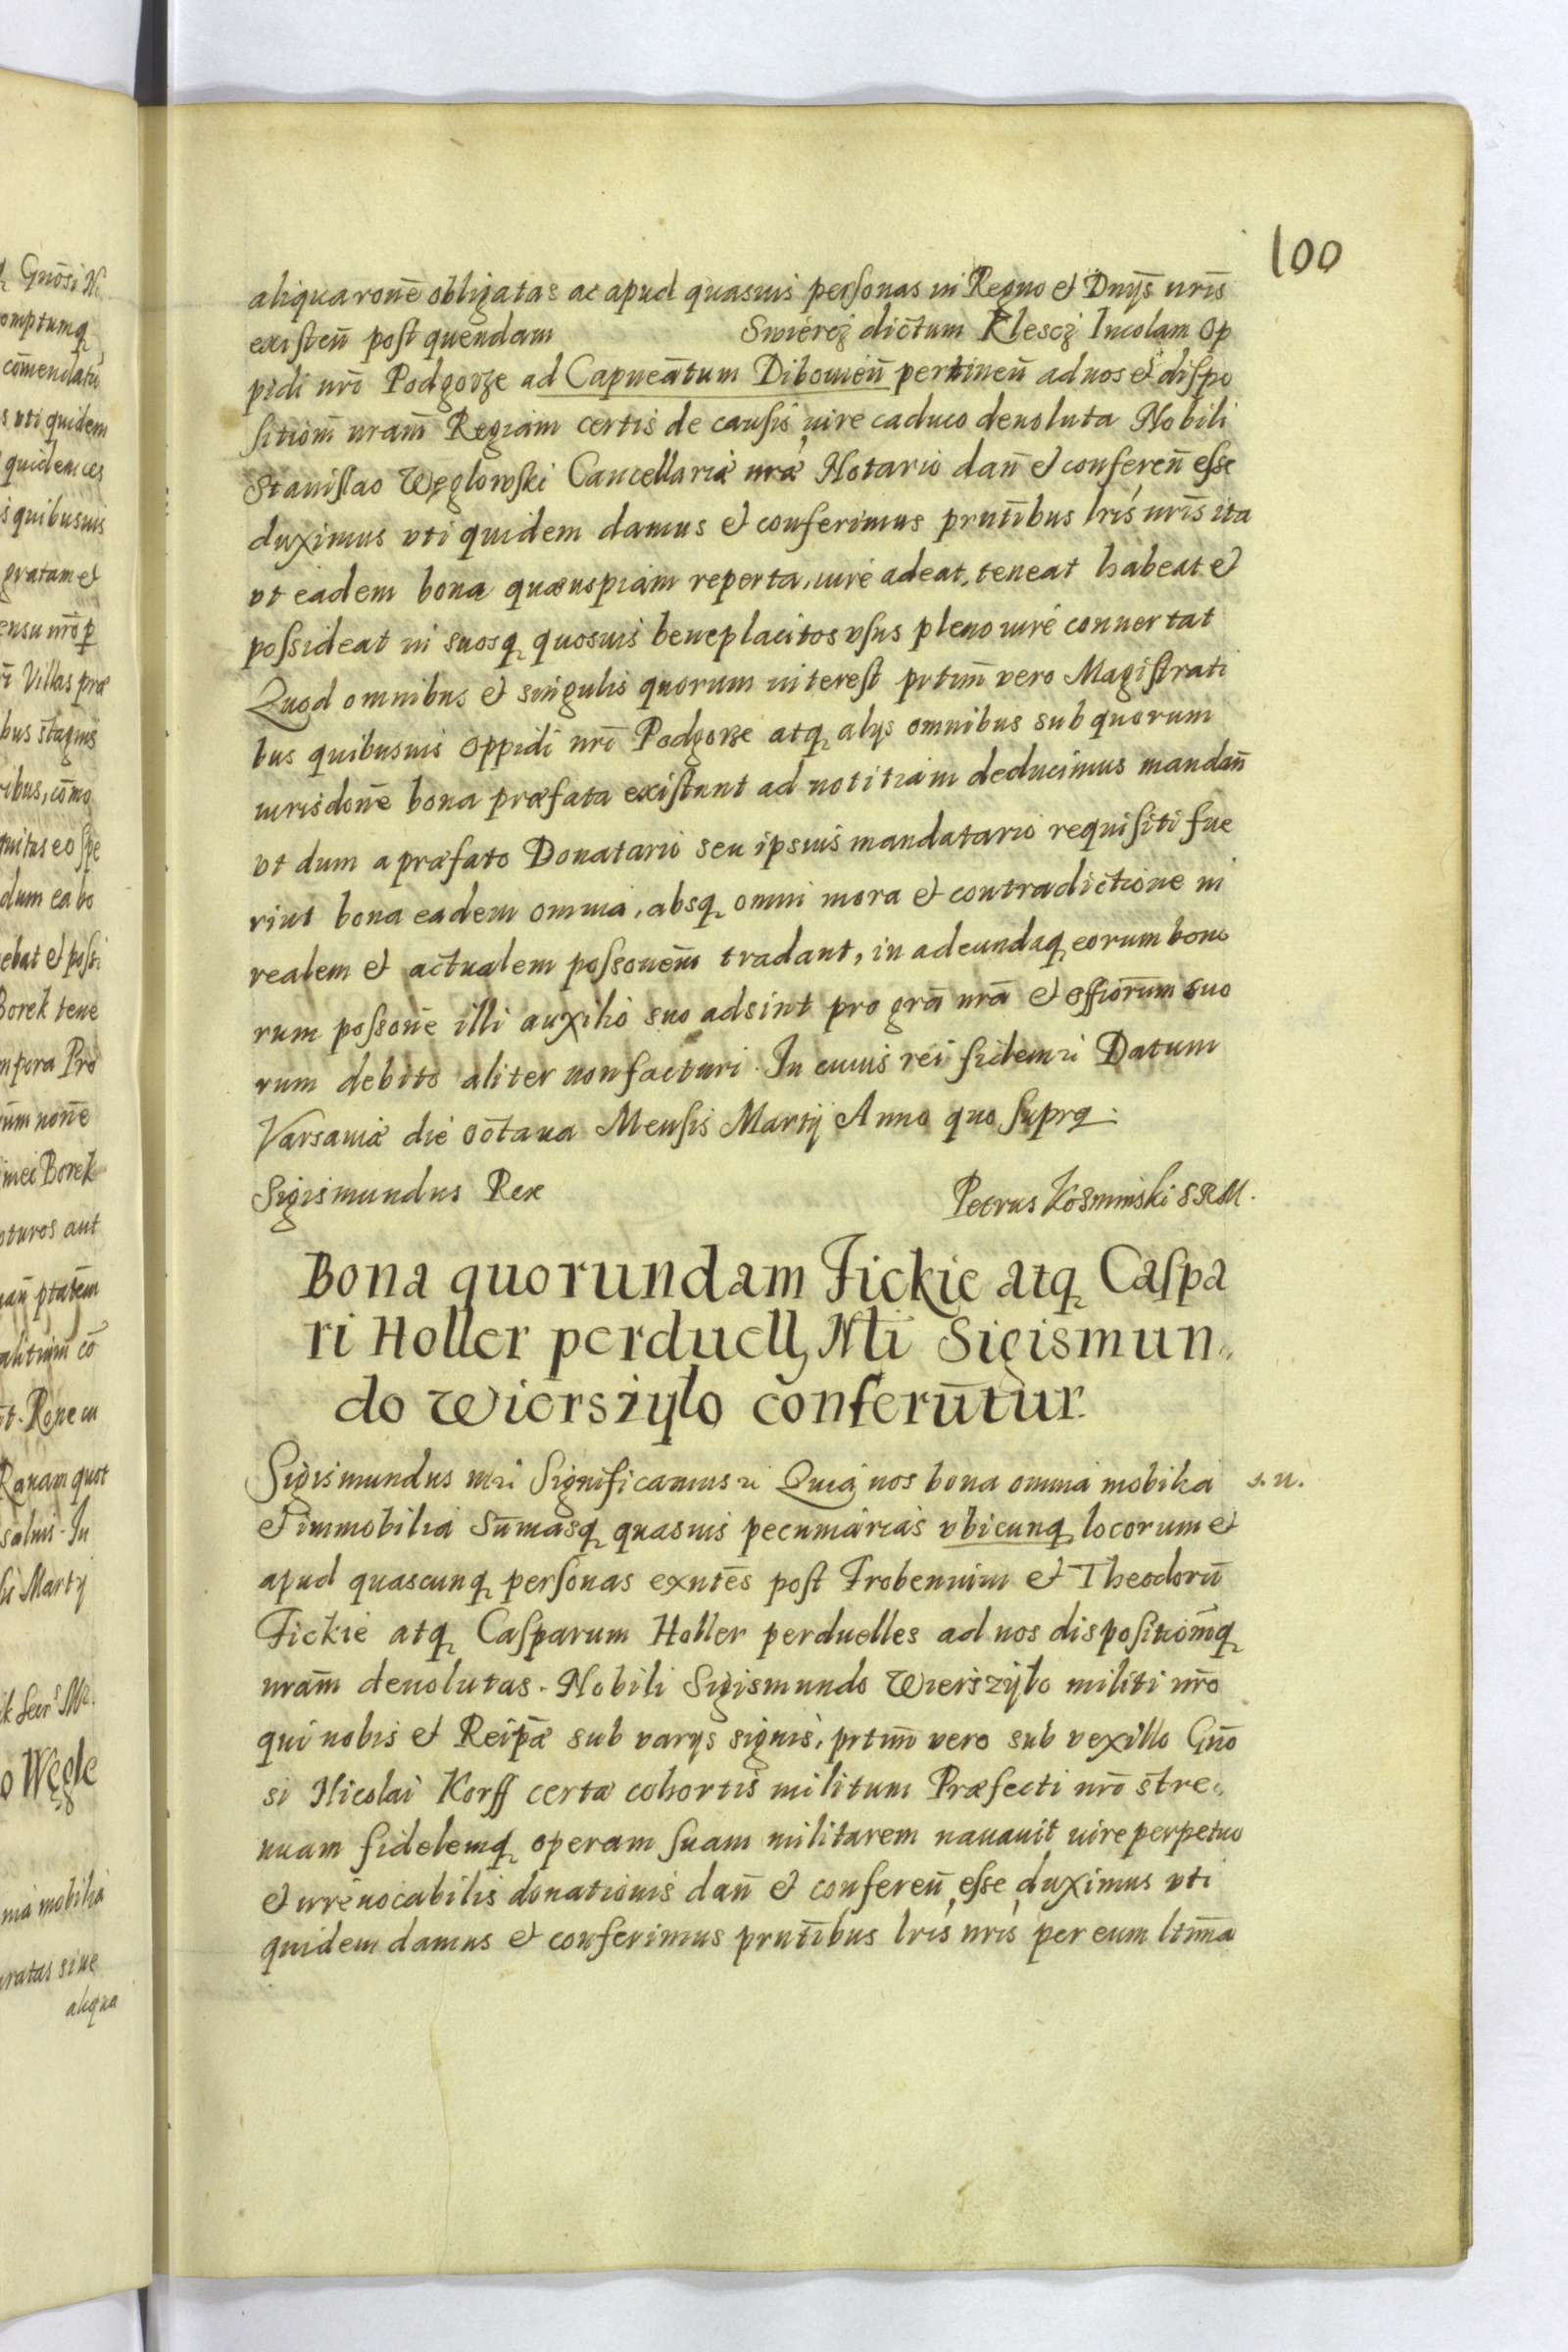 100
aliqua ronē obligatas ac apud quasuis personas in Regno et Dnijs nris̄
existen̄ post quendam Swiercz dictum Klescz Incolam Op
pidi nrī Podgorze ad Capneātum Dibouien̄ pertinen̄ ad nos et dispo
sitiom̄ nram̄ Regiam certis de causis iure caduco deuoluta Nobili
Stanislao Węglowski Cancellariæ nræ Notario dan̄ et conferen̄ esse
duximus vti quidem damus et conferimus prntībus lris nris̄ ita
vt eadem bona quæuspiam reperta, iure adeat, teneat habeat et
possideat in suosq quosuis beneplacitos vsus pleno iure conuertat
Quod omnibus et singulis quorum interest prtim̄ vero Magistrati
bus quibusuis Oppidi nrī Podgorze atq alijs omnibus sub quorum
iurisdonē bona præfata existunt ad notitiam deducimus mandan̄
vt dum a præfato Donatario seu ipsius mandatario requisiti fue
rint bona eadem omnia, absq omni mora et contradictione in
realem et actualem possonem̄ tradant, in adeundaq eorum bono
rum possonē illi auxilio suo adsint pro grā nrā et offiorum̄ suo
rum debito aliter non facturi. In cuius rei fidem ꝛc Datum
Varsauiæ die octaua Mensis Martij Anno quo supra.
Sigismundus Rex Petrus Kosminski SRM.
Bona quorundam Fickie atq Caspa
ri Holler perduell, Nli Sigismun
do Wierszylo conferūtur.
Sigismundus ꝛc Significamus ꝛc Quia nos bona omnia mobilia s. n.
et immobilia Sūmasq quasuis pecuniarias vbicunq locorum et
apud quascunq personas exntēs post Frobenium et Theodorū
Fickie atq Casparum Holler perduelles ad nos dispositiom̄q
nram̄ deuolutas. Nobili Sigismundo Wierszylo militi nrō
qui nobis et Reipǣ sub varijs signis, prtim̄ vero sub vexillo Gnō
si Nicolai Korff certæ cohortis militum Præfecti nrō stre
nuam fidelemq operam suam militarem nauauit iure perpetuo
et irreuocabilis donationis dan̄ et conferen̄ esse duximus vti
quidem damus et conferimus prntībus lris nris per eum ltim̄a